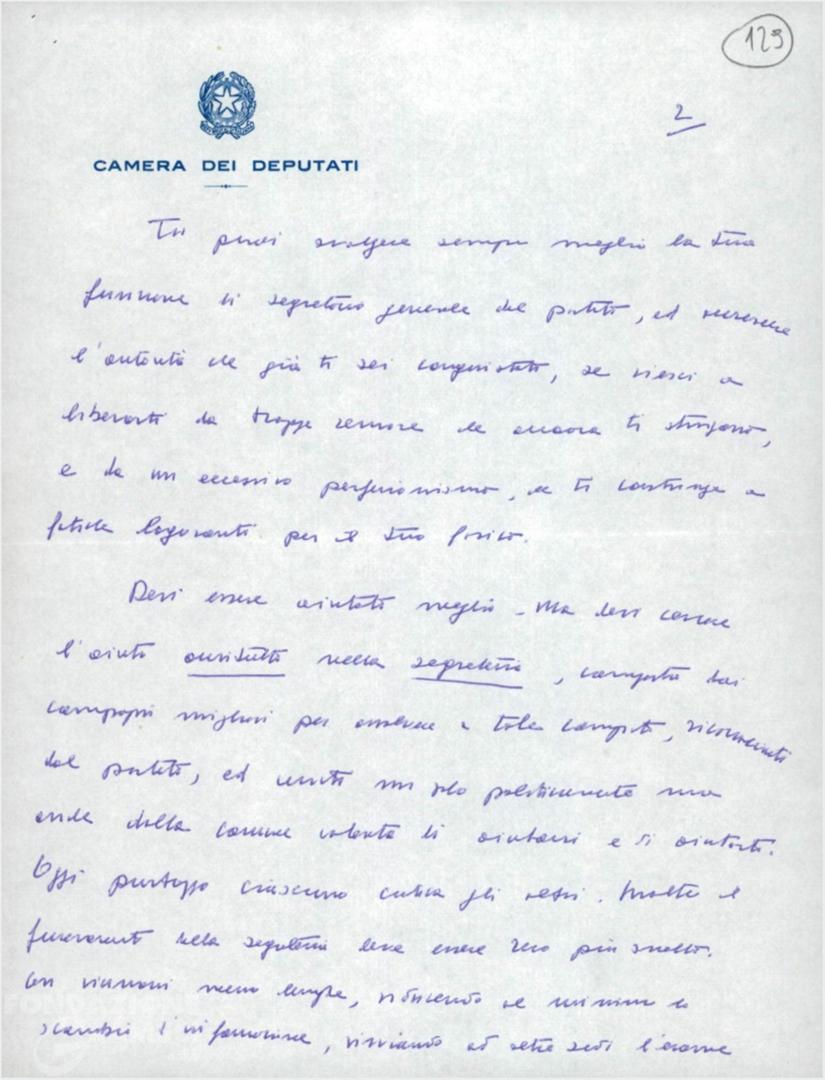 129
2
CAMERA DEI DEPUTATI
Tu puoi svolgere sempre meglio la tua
funzione di segretario generale del partito, ed accrescere
l'autorità che già ti sei conquistata, se riesci a
liberarti da troppe remore che ancora ti stringono,
e da un eccessivo perfezionismo, che ti costringe a
fatiche logoranti per il tuo fisico.
Devi essere aiutato meglio. Ma devi cercare
l'aiuto anzitutto nella segreteria, composta dai
compagni migliori per assolvere a tale compito, riconosciuti
dal partito, ed uniti non solo politicamente ma
anche dalla comune volontà di aiutarsi e di aiutarti.
Oggi purtroppo ciascuno critica gli altri. Inoltre il
funzionamento della segreteria deve essere reso più snello.
Con riunioni meno lunghe, riducendo al minimo lo
scambio d'informazione, rinviando ad altre sedi l'esame